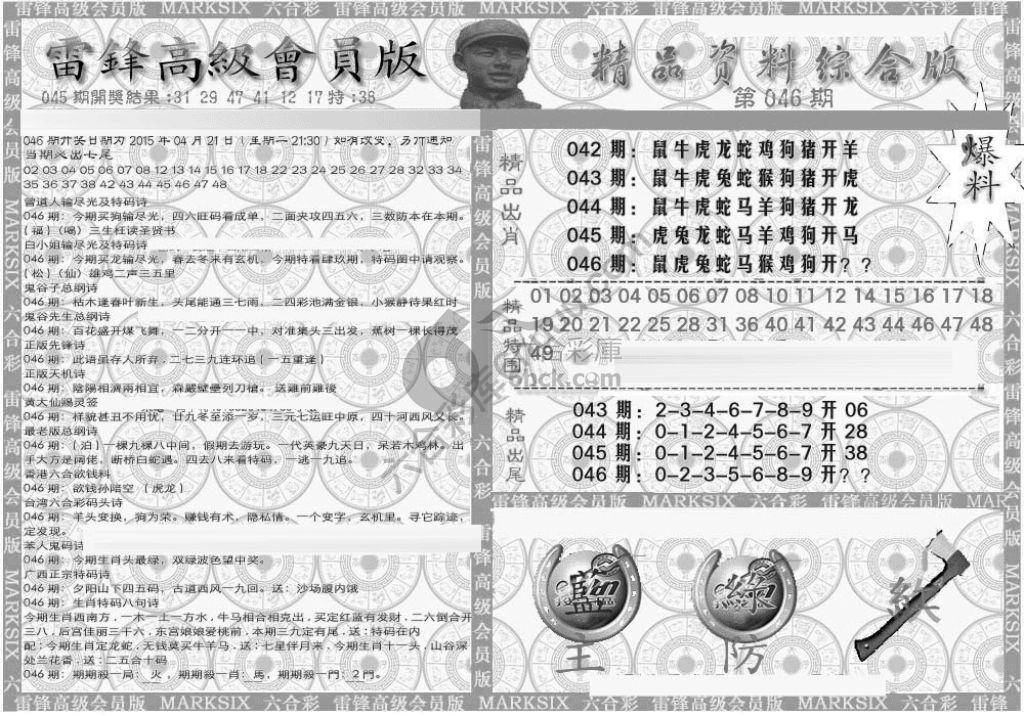 雷锋高级会员版 MARKSIX 六合彩 雷锋高级会员版 MARKSIX 六合彩 雷锋高级会员版 MARKSIX 六合彩 雷锋
雷鋒高級會員版
精品资料综合版
045期開獎結果:31 29 47 41 12 17特:38
第046期
爆料
046期开奖日期为2015年04月21日(星期二21:30)如有改变,另行通知
当期必出七尾
02 03 04 05 06 07 08 12 13 14 15 16 17 18 22 23 24 25 26 27 28 32 33 34
35 36 37 38 42 43 44 45 46 47 48
曾道人输尽光及特码诗
046期:今期买狗输尽光,四六旺码看成单,二面夹攻四五六,三数防本在本期。
{福}(喝)三生枉读圣贤书
白小姐输尽光及特码诗
046期:今期买龙输尽光,春去冬来有玄机,今期特看肆玖期,特码图中请观察。
{松}(仙)雄鸡二声三五里
鬼谷子总纲诗
046期:枯木逢春叶新生,头尾能通三七闹,二四彩池满金银,小猴静待果红时
鬼谷先生总纲诗
046期:百花盛开媒飞舞,一二分开一一中,对准集头三出发,蕉树一棵长得茂
正版先锋诗
046期:此语虽存人所弃.二七三九连环追{一五重逢}
正版天机诗
046期:陰陽相濟兩相宜,森嚴壁壘列刀槍。送雞前雞後
黄大仙赐灵签
046期:样貌甚丑不用忧,廿九冬至添一岁,三元七运旺中原,四十河西风又长。
最老版总纲诗
046期:{泊}一棵九棵八中间,假期去游玩。一代英豪九天日,呆若木鸡林。出
手大方是阔佬,断桥白蛇遇。四去八来看特码,一逃一九追。
香港六合欲钱料
046期:欲钱孙暗空{虎龙}
台湾六合彩码头诗
046期:羊头变换,狗为荣。赚钱有术,隐私情。一个变字,玄机里。寻它踪迹,
定发现。
苯人鬼码诗
046期:今期生肖头最绿,双绿波色望中奖。
广西正宗特码诗
046期:夕阳山下四五码,古道西风一九回。送:沙场腹内饿
046期:生肖特码八句诗
今期生肖西南方.一木一土一方水,牛马相合相克出,买定红蓝有发财,二六倒合开
三八,后宫佳丽三千六.东宫娘娘爱桃前.本期三九定有尾.送:特码在内
配:今期生肖定龙蛇.无钱莫买牛羊马.送:七星伴月来.今期生肖十一头,山谷深
处兰花香.送:二五合十码
046期:期期殺一局:火,期期殺一肖:馬,期期殺一門:2門。
精品出肖
042期:鼠牛虎龙蛇鸡狗猪开羊
043期:鼠牛虎兔蛇猴狗猪开虎
044期:鼠牛虎蛇马羊狗猪开龙
045期:虎兔龙蛇马羊鸡狗开马
046期:鼠虎兔蛇马猴鸡狗开??
精品特围
01 02 03 04 05 06 07 08 10 11 12 14 16 17 18
19 20 21 22 25 28 31 36 40 41 42 43 44 46 47 48
49
彩庫
6hck.com
精品出尾
043期:2-3-4-6-7-8-9开06
044期:0-1-2-4-5-6-7开28
045期:0-1-2-4-5-6-7开38
046期:0-2-3-5-6-8-9开??
雷锋高级会员版 MARKSIX 六合彩 雷锋高级会员版
藍
綠
主
防
雷锋高级会员版 MARKSIX 六合彩 雷锋高级会员版 MARKSIX 六合彩 雷锋高级会员版 MARKSIX 六合彩 雷锋